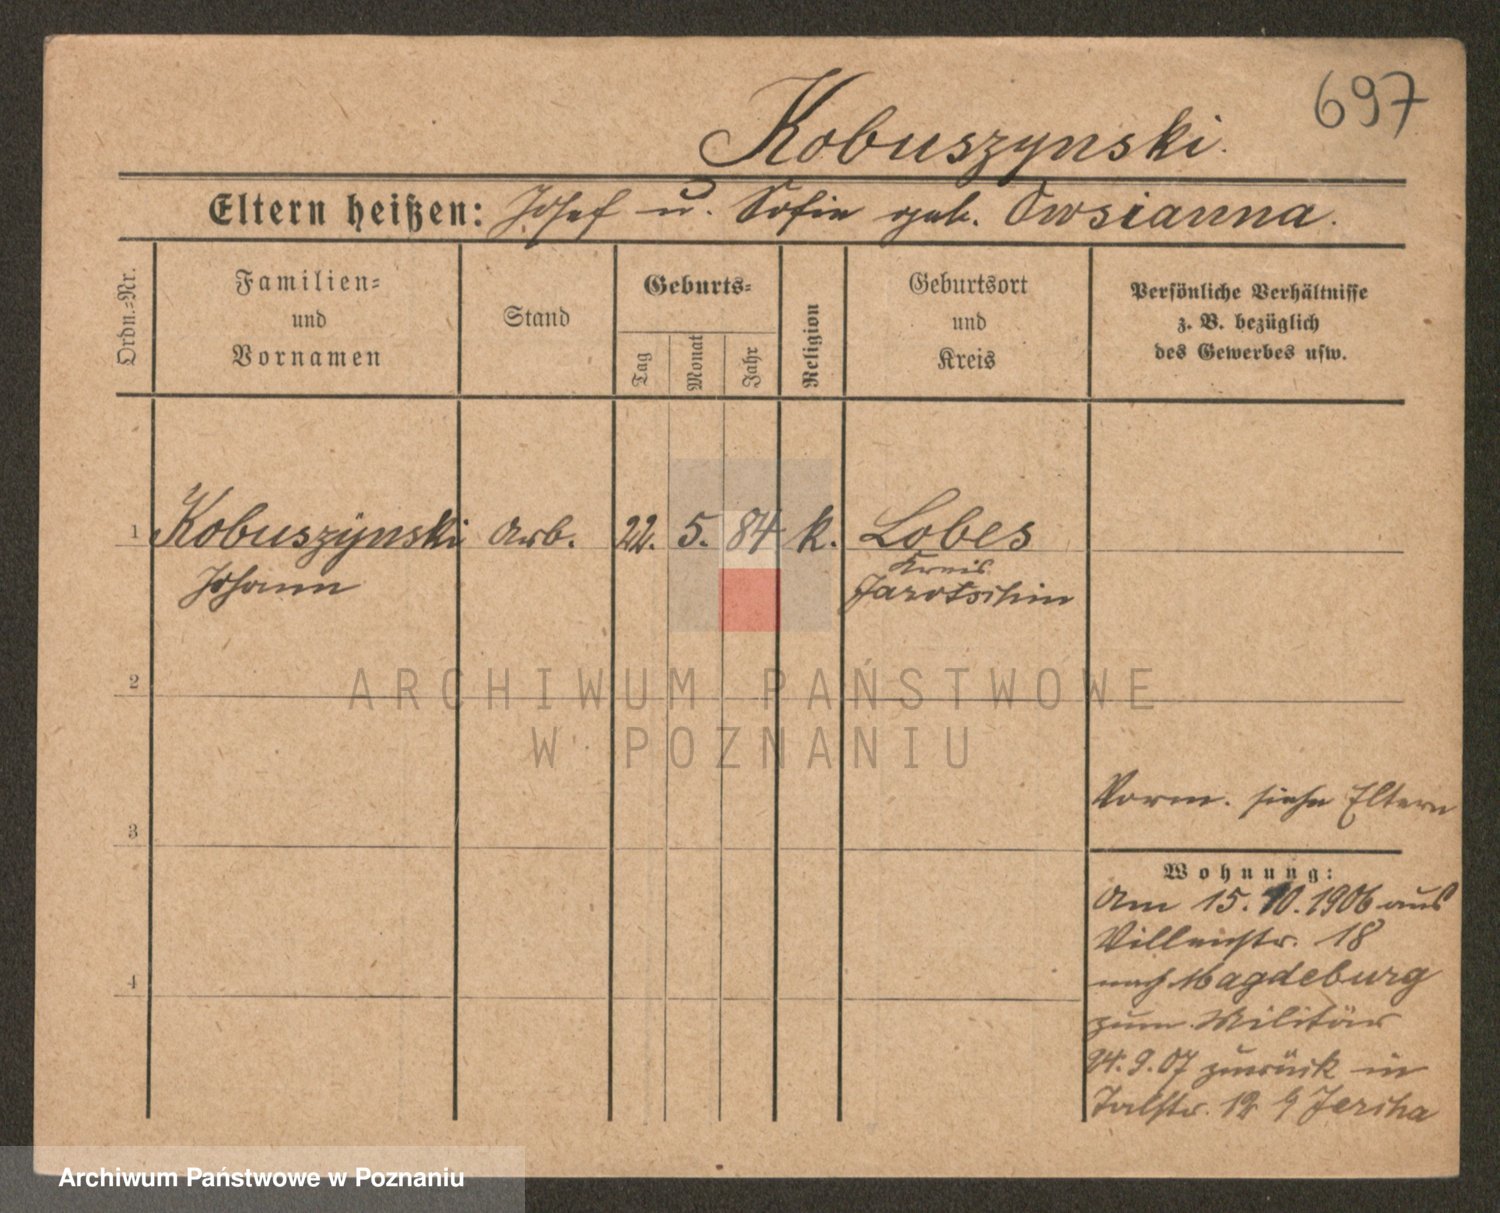 697
Kobuszynski.
Eltern heißen: Josef u. Sofie geb. Owsianna.
Ordn.=Nr.
Familien=
und
Vornamen
Stand
Geburts=
Tag
Monat
Jahr
Religion
Geburtsort
und
Kreis
Persönliche Verhältnisse
z. B. bezüglich
des Gewerbes usw.
1 Kobuszynski Arb. 22. 5. 84 k. Lobes
Kreis
Johann Jarotschin
2
ARCHIWUM PAŃSTWOWE
W POZNANIU
Vorm. siehe Eltern
3
Wohnung:
Am 15. 10. 1906 aus
Villenstr. 18
4
nach Magdeburg
zum Militär
24. 9. 07 zurück in
Talstr. 12 Jercha
Archiwum Państwowe w Poznaniu